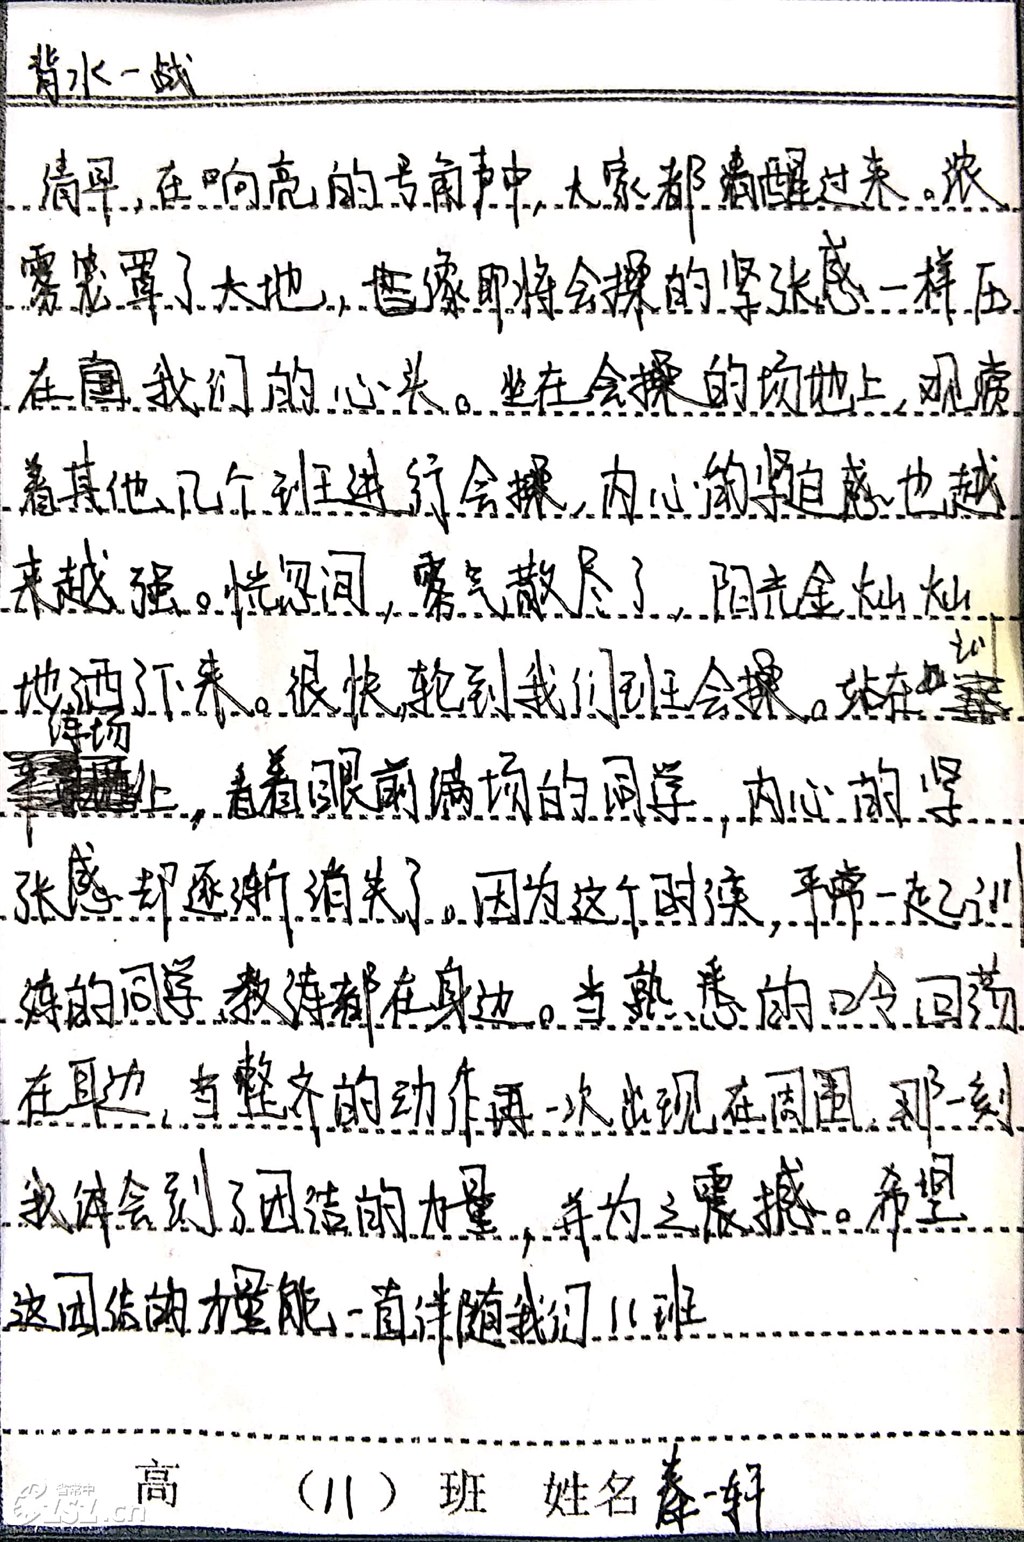 背水一战
清早，在响亮的号角声中，大家都清醒过来。浓
雾笼罩了大地，也像即将会操的紧张感一样压
在我们的心头。坐在会操的场地上，观赏
着其他几个班进行会操，内心的紧迫感也越
来越强。恍忽间，雾气散尽了，阳光金灿灿
地洒下来。很快，轮到我们班会操。站在训
练场上，看着眼前满场的同学，内心的紧
张感却逐渐消失了。因为这个时候，平常一起训
练的同学、教练都在身边。当熟悉的口令回荡
在耳边，当整齐的动作再一次出现在周围，那一刻
我体会到了团结的力量，并为之震撼。希望
这团结的力量能一直伴随我们11班
高 （11）班 姓名 秦一轩
省常中
ZSZ.cn